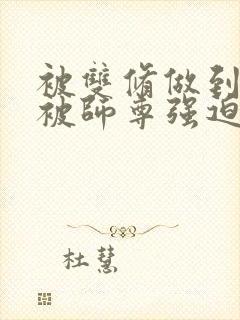 被雙脩做到
被師尊强迫
杜慧